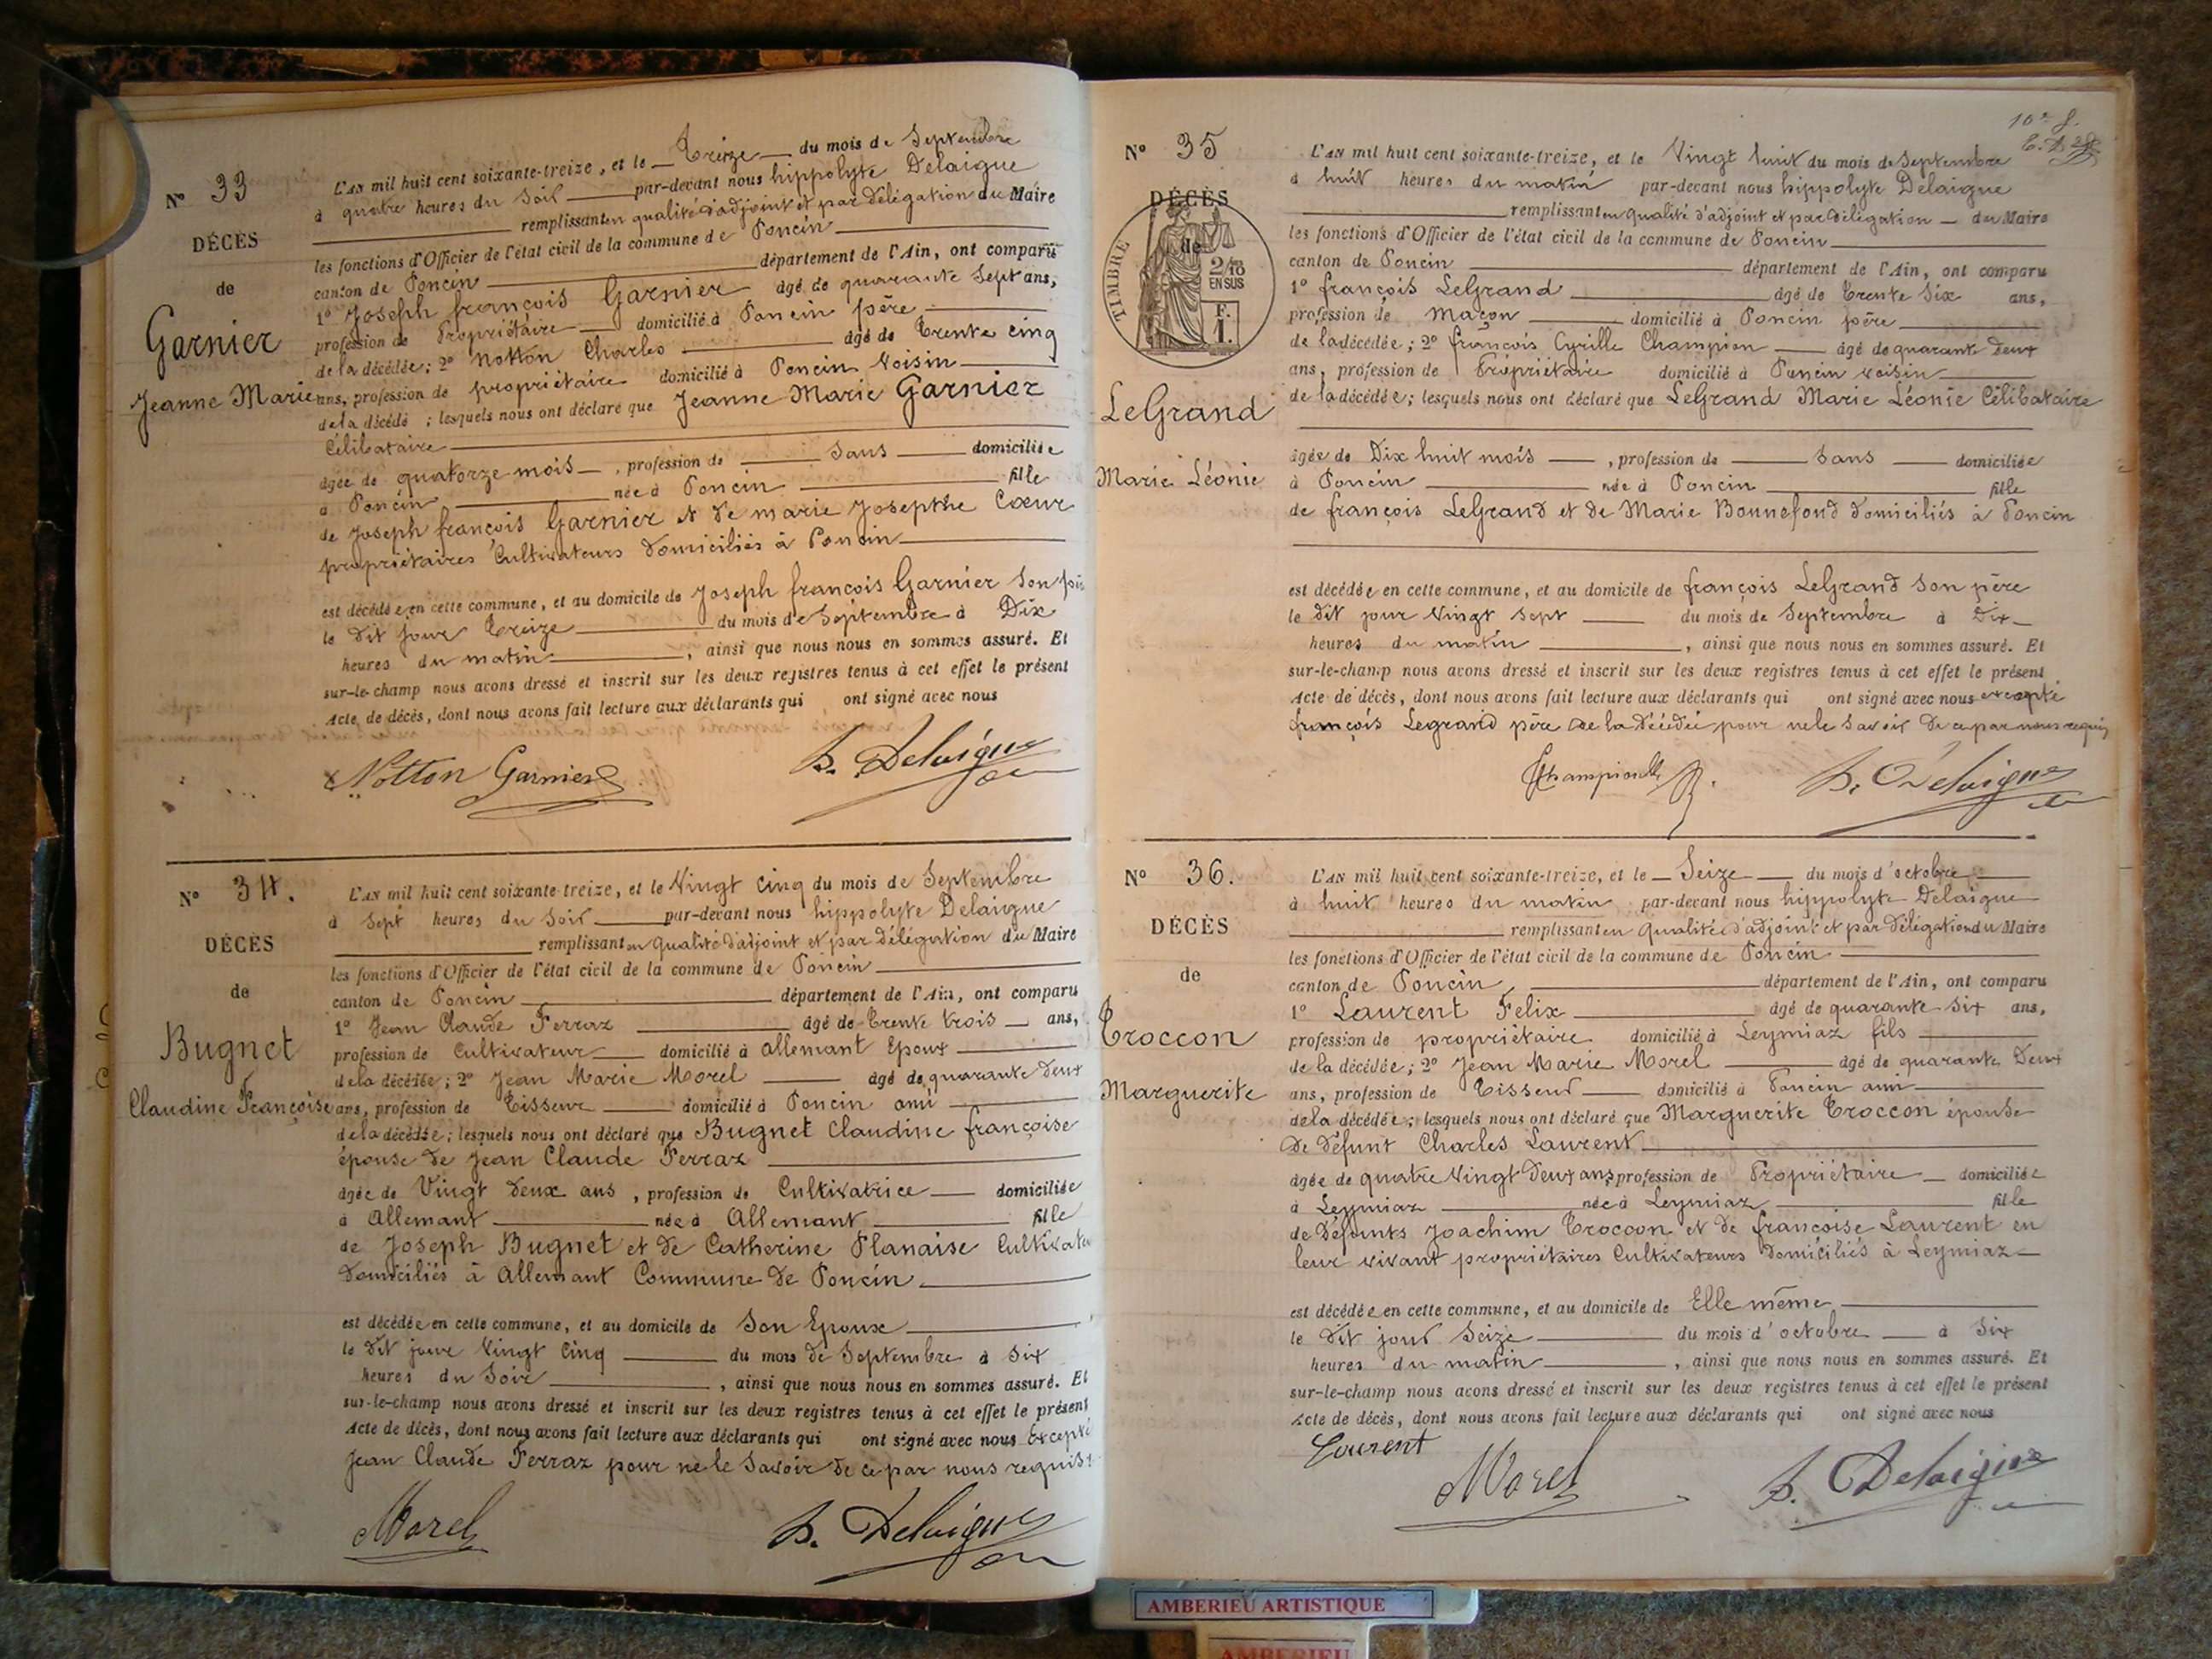 N° 33
DÉCÈS
de
Garnier
Jeanne Marie
L'AN mil huit cent soixante-treize, et le Treize du mois de Septembre
à quatre heures du Soir par-devant nous hippolyte Delaigue
remplissant en qualité d'adjoint et par Délégation du Maire
les fonctions d'Officier de l'état civil de la commune de Poncin
canton de Poncin département de l'Ain, ont comparu
1° Joseph françois Garnier âgé de quarante Sept ans,
profession de Propriétaire domicilié à Poncin père
de la décédée; 2° Notton Charles âgé de trente cinq
ans, profession de propriétaire domicilié à Poncin Voisin
de la décédé ; lesquels nous ont déclaré que Jeanne Marie Garnier
Célibataire
âgée de quatorze mois , profession de Sans domiciliée
à Poncin née à Poncin fille
de Joseph françois Garnier et de marie Josepthe Cœur
propriétaires Cultivateurs Domiciliés à Poncin
est décédée en cette commune, et au domicile de Joseph françois Garnier Son père
le dit jour Treize du mois de Septembre à Dix
heures du matin , ainsi que nous nous en sommes assuré. Et
sur-le-champ nous avons dressé et inscrit sur les deux registres tenus à cet effet le présent
Acte de décès, dont nous avons fait lecture aux déclarants qui ont signé avec nous
Notton Garnier h. Delaigue
N° 34.
DÉCÈS
de
Bugnet
Claudine Françoise
L'AN mil huit cent soixante-treize, et le Vingt Cinq du mois de Septembre
à Sept heures du Soir par-devant nous hippolyte Delaigue
remplissant en qualité d'adjoint et par Délégation du Maire
les fonctions d'Officier de l'état civil de la commune de Poncin
canton de Poncin département de l'Ain, ont comparu
1° Jean Claude Ferraz âgé de Trente trois ans,
profession de Cultivateur domicilié à allemant Epoux
de la décédée; 2° Jean Marie Morel âgé de quarante Deux
ans, profession de Tisseur domicilié à Poncin ami
de la décédée; lesquels nous ont déclaré que Bugnet Claudine françoise
épouse de Jean Claude Ferraz
âgée de Vingt Deux ans , profession de Cultivatrice domiciliée
à Allemant née à Allemant fille
de Joseph Bugnet et de Catherine Planaise
Domiciliés à Allemant Commune de Poncin
est décédée en cette commune, et au domicile de Son Epoux
le dit jour Vingt Cinq du mois de Septembre à Six
heures du Soir , ainsi que nous nous en sommes assuré. Et
sur-le-champ nous avons dressé et inscrit sur les deux registres tenus à cet effet le présent
Acte de décès, dont nous avons fait lecture aux déclarants qui ont signé avec nous Excepté
Jean Claude Ferraz pour ne le Savoir De ce par nous requis
Morel h. Delaigue
10e f.
N° 35
DÉCÈS
de
TIMBRE
2/10
EN SUS
F.
1.
LeGrand
Marie Léonie
L'AN mil huit cent soixante-treize, et le Vingt huit du mois de Septembre
à huit heures du matin par-devant nous hippolyte Delaigue
remplissant en qualité d'adjoint et par Délégation du Maire
les fonctions d'Officier de l'état civil de la commune de Poncin
canton de Poncin département de l'Ain, ont comparu
1° françois LeGrand âgé de Trente Six ans,
profession de Maçon domicilié à Poncin père
de la décédée; 2° françois Cyrille Champion âgé de quarante Deux
ans, profession de Propriétaire domicilié à Poncin voisin
de la décédée; lesquels nous ont déclaré que LeGrand Marie Léonie Célibataire
âgée de Dix huit mois , profession de Sans domiciliée
à Poncin née à Poncin fille
de françois LeGrand et de Marie Bonnefond Domiciliés à Poncin
est décédée en cette commune, et au domicile de françois LeGrand Son père
le dit jour Vingt Sept du mois de Septembre à Dix
heures du matin , ainsi que nous nous en sommes assuré. Et
sur-le-champ nous avons dressé et inscrit sur les deux registres tenus à cet effet le présent
Acte de décès, dont nous avons fait lecture aux déclarants qui ont signé avec nous excepté
françois Legrand père de la Décédée pour ne le Savoir De ce par nous requis
h. Delaigue
N° 36.
DÉCÈS
de
Troccon
Marguerite
L'AN mil huit cent soixante-treize, et le Seize du mois d'octobre
à huit heures du matin par-devant nous hippolyte Delaigue
remplissant en qualité d'adjoint et par Délégation du Maire
les fonctions d'Officier de l'état civil de la commune de Poncin
canton de Poncin département de l'Ain, ont comparu
1° Laurent Felix âgé de quarante Six ans,
profession de propriétaire domicilié à Leymiaz fils
de la décédée; 2° Jean Marie Morel âgé de quarante Deux
ans, profession de Tisseur domicilié à Poncin ami
de la décédée; lesquels nous ont déclaré que Marguerite Troccon épouse
De Défunt Charles Laurent
âgée de quatre Vingt Deux ans, profession de Propriétaire domiciliée
à Leymiaz née à Leymiaz fille
de Défunts Joachim Troccon et de françoise Laurent en
leur vivant propriétaires Cultivateurs Domiciliés à Leymiaz
est décédée en cette commune, et au domicile de Elle même
le dit jour Seize du mois d'octobre à Six
heures du matin , ainsi que nous nous en sommes assuré. Et
sur-le-champ nous avons dressé et inscrit sur les deux registres tenus à cet effet le présent
Acte de décès, dont nous avons fait lecture aux déclarants qui ont signé avec nous
Laurent
Morel h. Delaigue
AMBERIEU ARTISTIQUE
AMBERIEU